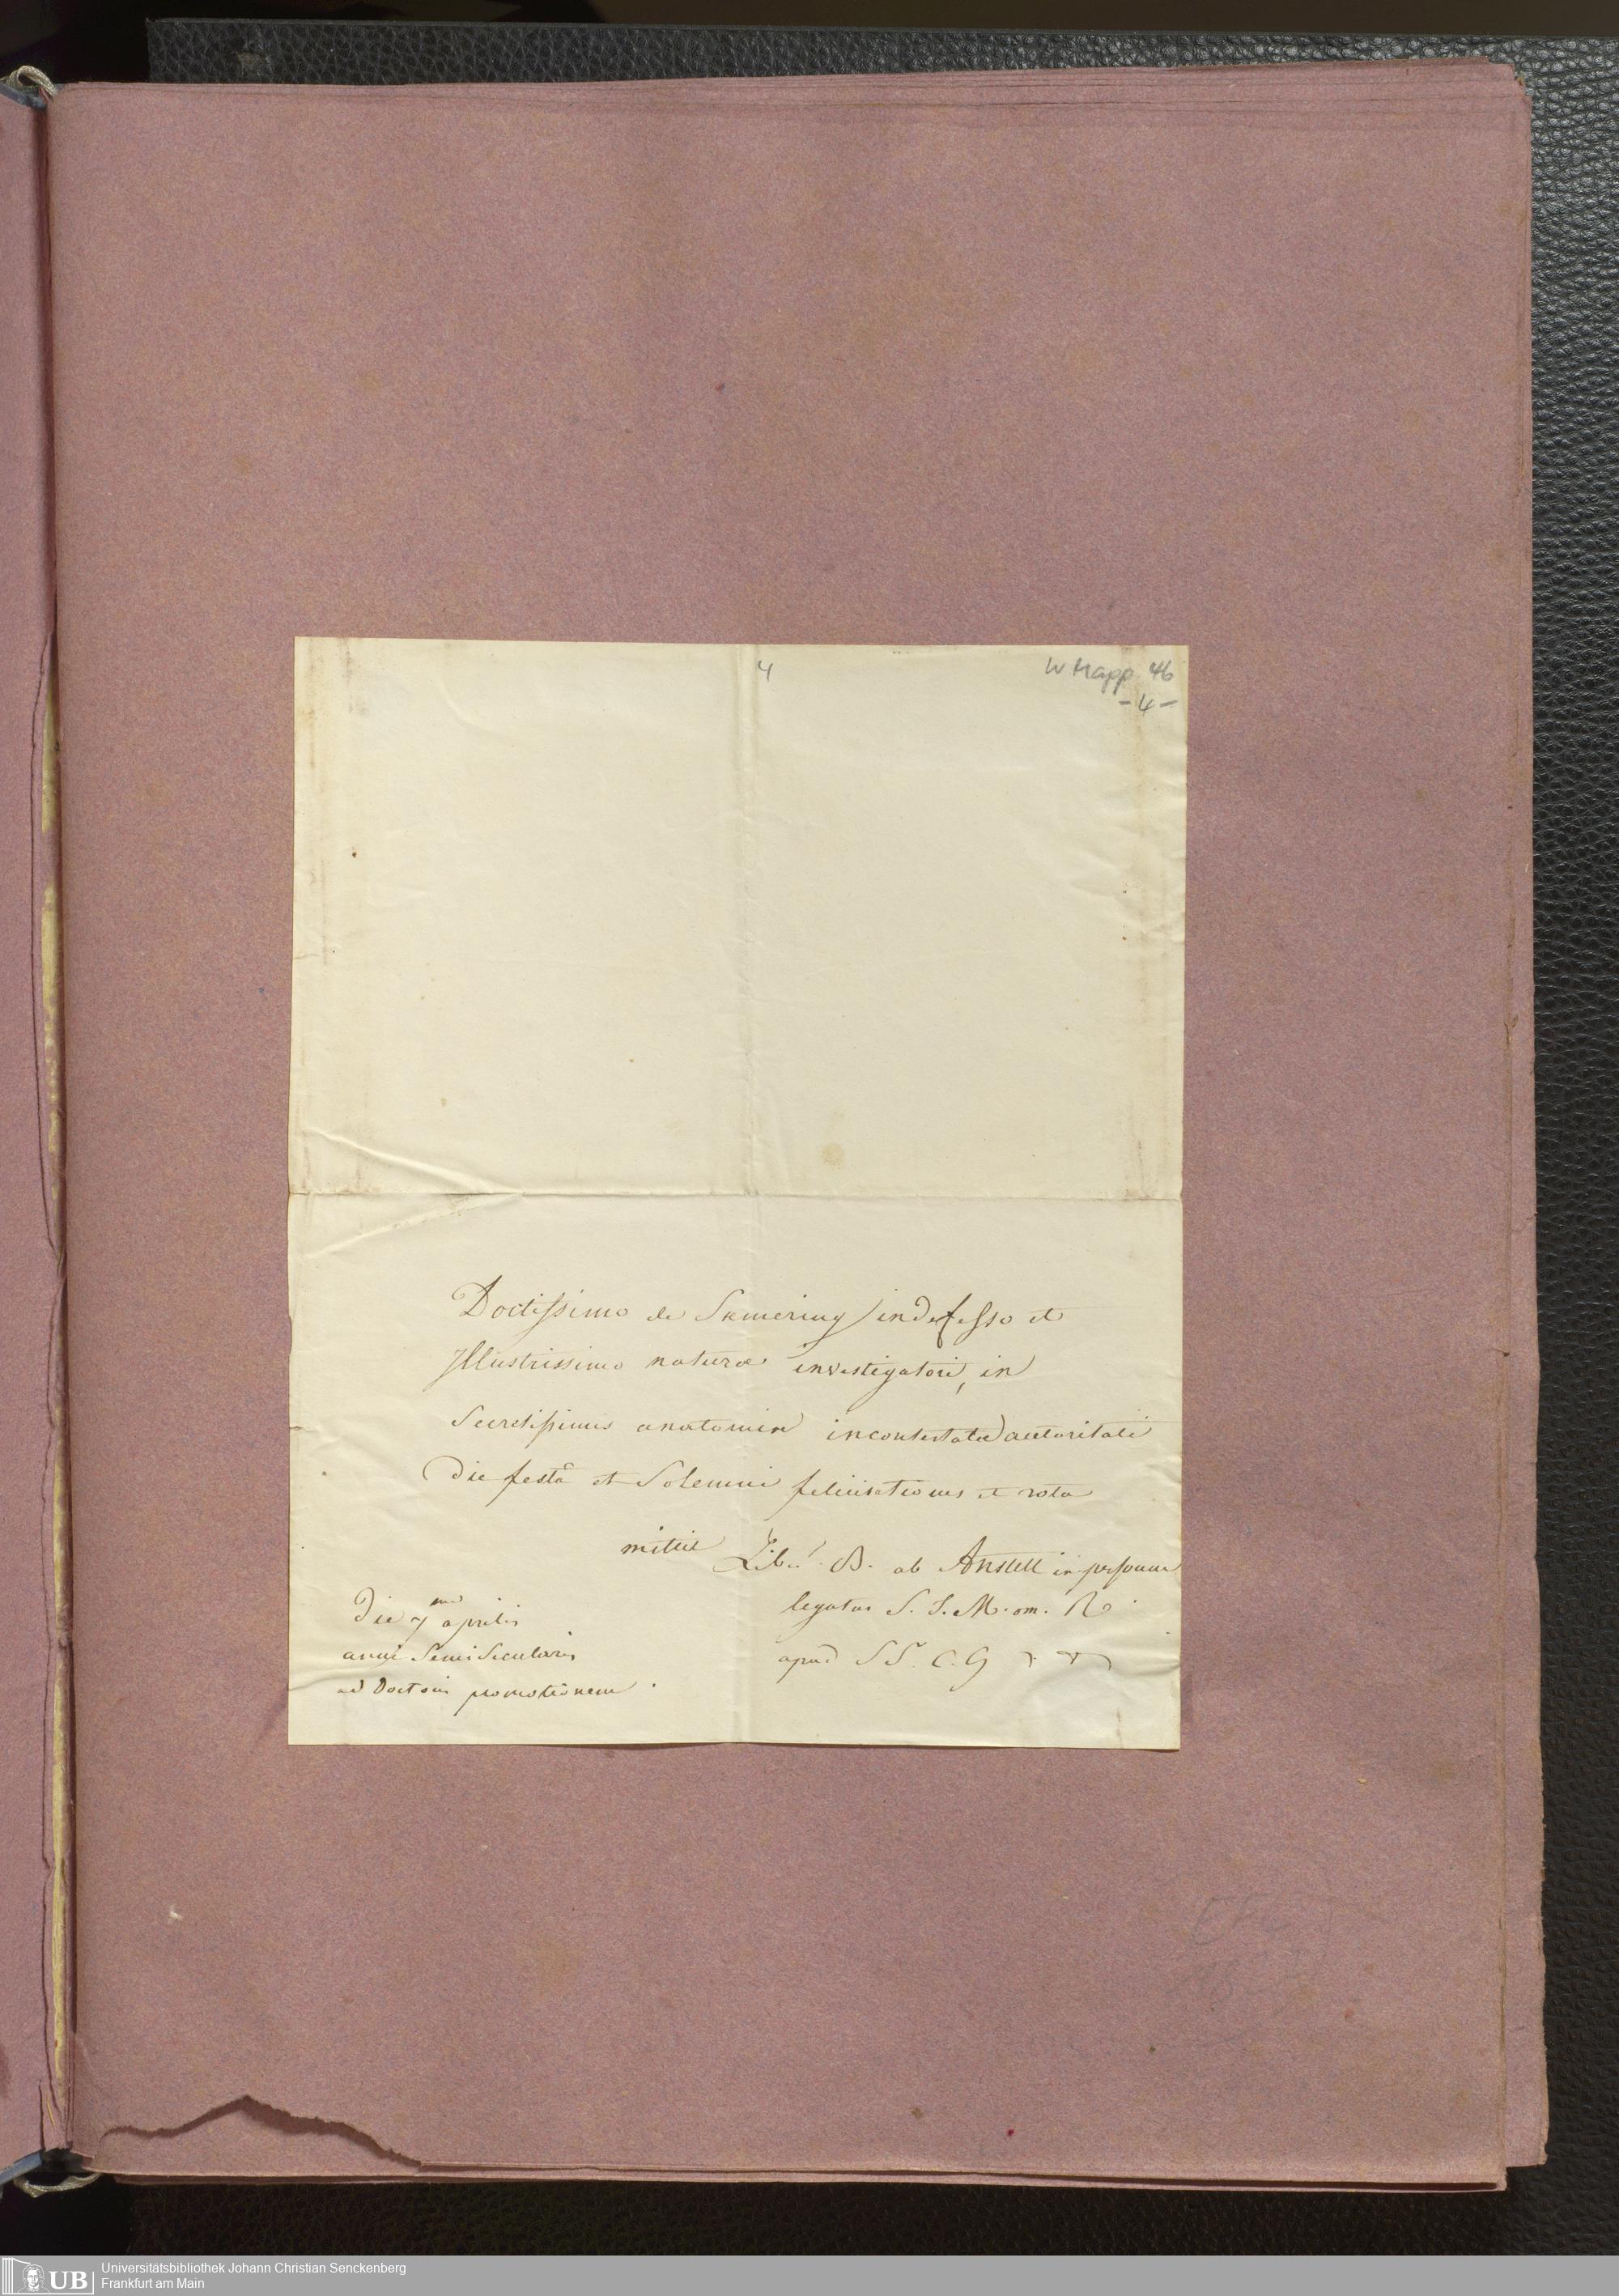 4
W Mapp 46
- 4 -
Doctissimo de Sœmering indefesso et
Illustrissimo naturæ investigatori, in
Secretissimis anatomiæ incontestatæ autoritati
Die festâ et Solemni felicitationes et vota
mittit Lib. B. ab Anstett in personna
legatus S. I. M. om. R.
apud SS. C. G
Die 7 aprilis
anni Semisecularis
ad Doctoris promotionem.
UB
Universitätsbibliothek Johann Christian Senckenberg
Frankfurt am Main